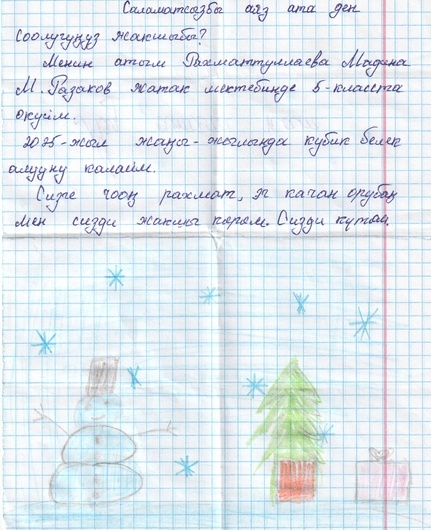 Саламатсызбы аяз ата ден
соолугуңуз жакшыбы?
Менин атым Рахматтуллаева Мадина
М. Разаков жатак мектебинде 5-класста
окуйм.
2025-жыл жаңы-жылында кубик белек
алууну каалайм.
Сизге чоң рахмат, эч качан
мен сизди жакшы көрөм. Сизди күтөм.